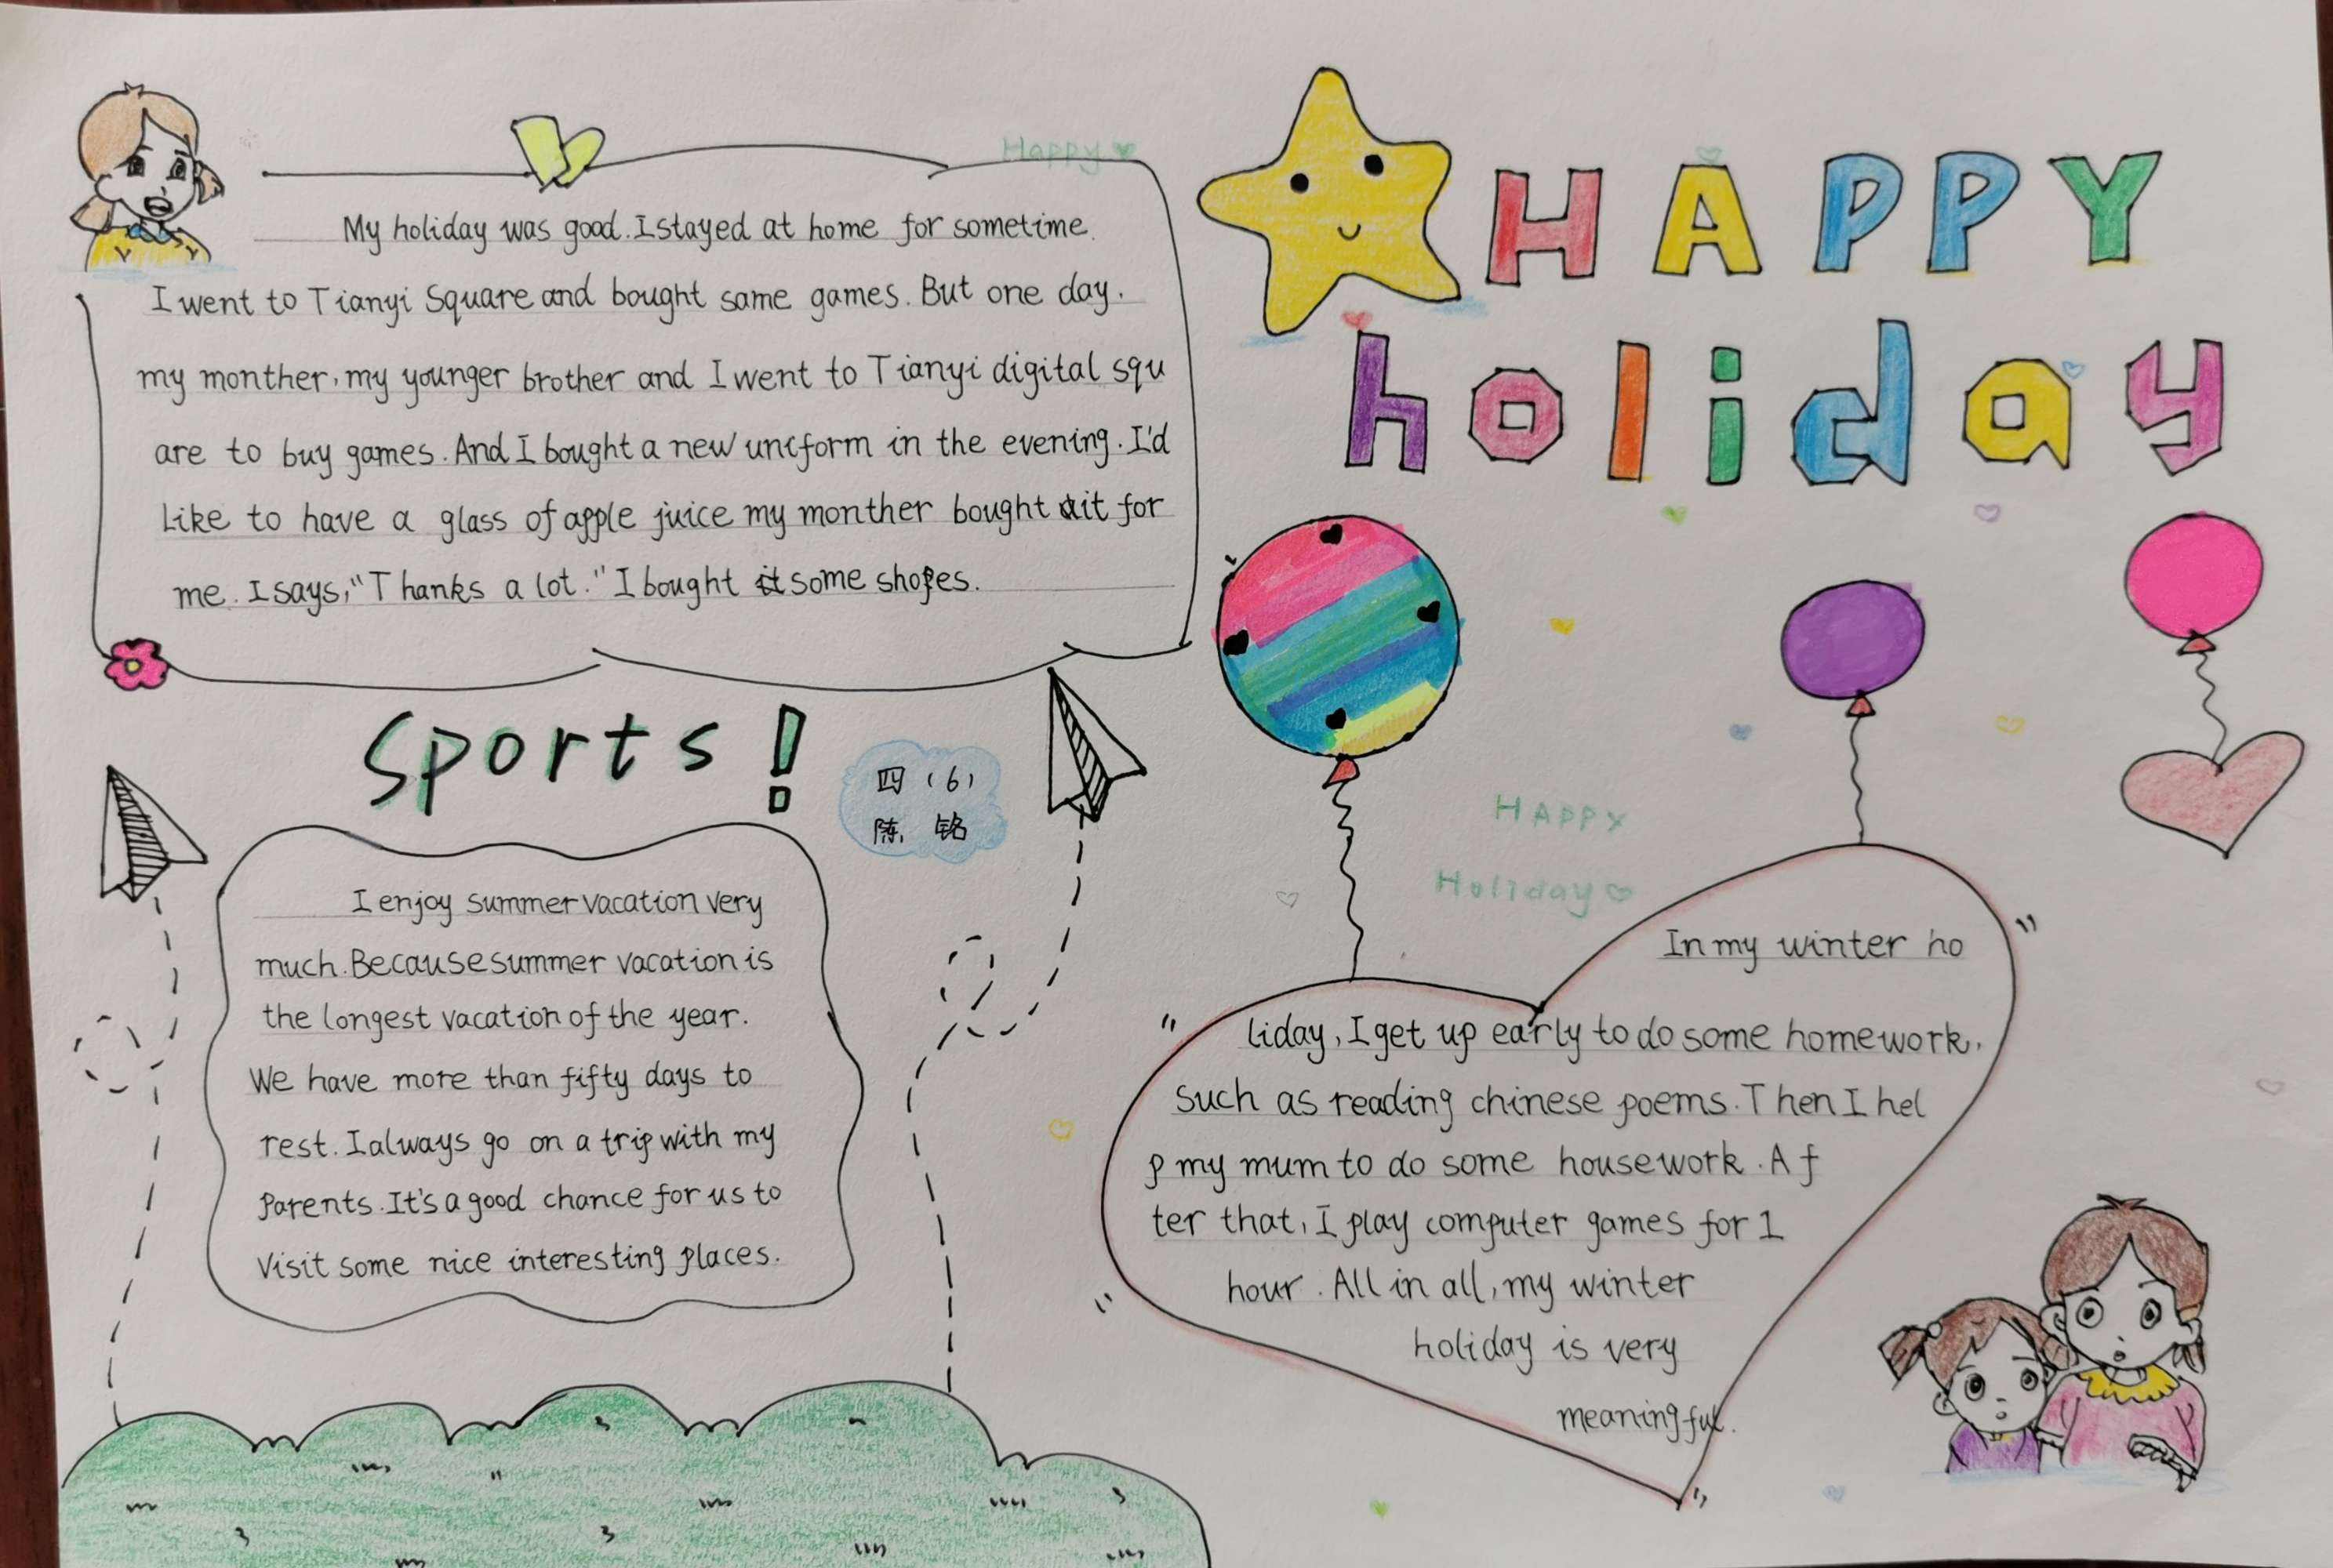 HAPPY
holiday
Happy
My holiday was good. I stayed at home for sometime.
I went to Tianyi Square and bought same games. But one day.
my monther, my younger brother and I went to Tianyi digital squ
are to buy games. And I bought a new uniform in the evening. I'd
Like to have a glass of apple juice my monther bought it for
me. I says, "Thanks a lot." I bought some shoes.
Sports!
四(6)
陈铭
I enjoy summer vacation very
much. Because summer vacation is
the longest vacation of the year.
We have more than fifty days to
rest. I always go on a trip with my
Parents. It's a good chance for us to
Visit some nice interesting places.
HAPPY
Holiday
In my winter ho
liday, I get up early to do some homework,
Such as reading chinese poems. Then I hel
p my mum to do some housework. Af
ter that, I play computer games for 1
hour. All in all, my winter
holiday is very
meaningful.